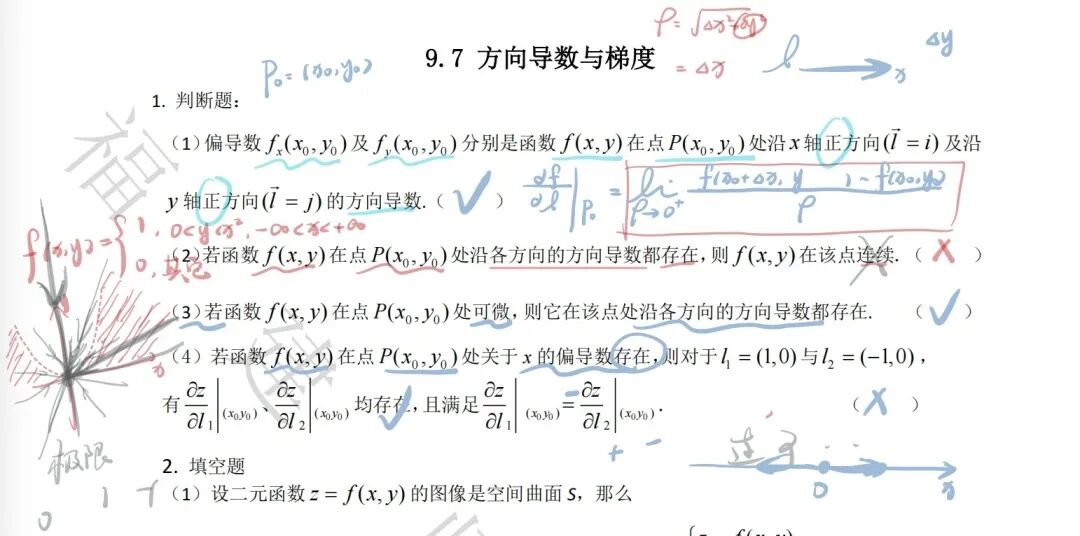 ρ = √Δx²+Δy²
= Δx
l
x
Δy
9.7 方向导数与梯度
P₀ = (x₀, y₀)
1. 判断题:
(1)偏导数 fₓ(x₀, y₀) 及 f_y(x₀, y₀) 分别是函数 f(x, y) 在点 P(x₀, y₀) 处沿 x 轴正方向(l⃗ = i) 及沿
y 轴正方向(l⃗ = j) 的方向导数.( √ )
∂f/∂l |P₀ = lim ρ→0⁺ f(x₀+Δx, y ) - f(x₀, y₀) / ρ
f(x, y) = { 1, 0<y<x², -∞<x<+∞
0, 其它
(2)若函数 f(x, y) 在点 P(x₀, y₀) 处沿各方向的方向导数都存在, 则 f(x, y) 在该点连续. ( × )
(3)若函数 f(x, y) 在点 P(x₀, y₀) 处可微, 则它在该点处沿各方向的方向导数都存在. ( √ )
x
(4) 若函数 f(x, y) 在点 P(x₀, y₀) 处关于 x 的偏导数存在, 则对于 l₁ = (1,0) 与 l₂ = (−1,0) ,
有 ∂z/∂l₁ |(x₀,y₀) 、 ∂z/∂l₂ |(x₀,y₀) 均存在, 且满足 ∂z/∂l₁ |(x₀,y₀) = ∂z/∂l₂ |(x₀,y₀) . ( × )
+ -
极限
1
0
0 x
2. 填空题
(1) 设二元函数 z = f(x, y) 的图像是空间曲面 S, 那么
福